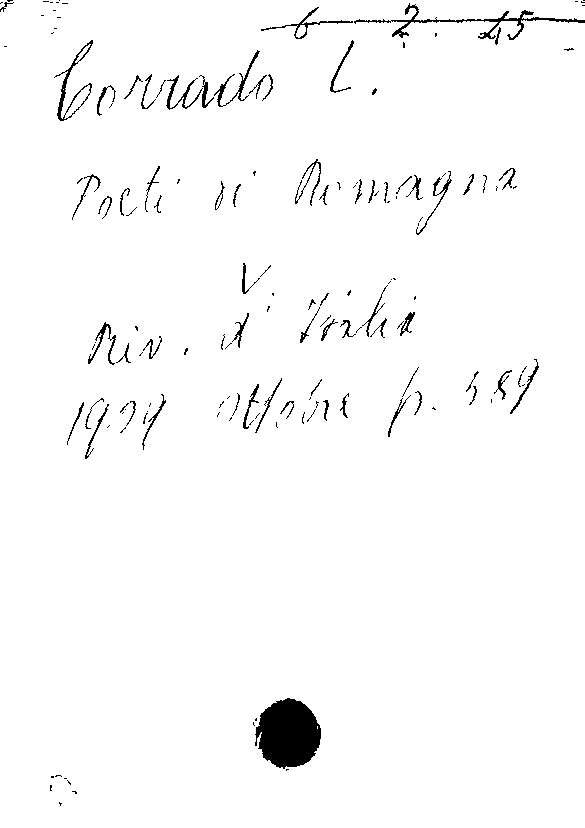 6 2. 45
Corrado L.
Poeti di Romagna
V
Riv. d'Italia
1909 ottobre p. 589